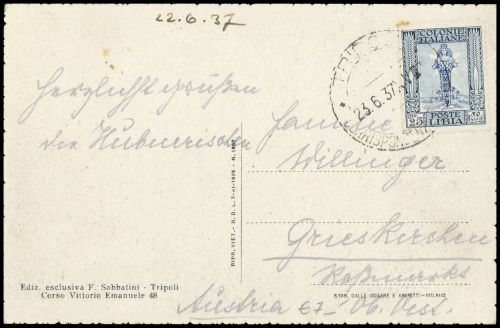 22.6.37
COLONIE
ITALIANE
25
POSTE
LIBIA
23.6.37
Herzlichst grüßen
die
Familie
Willinger
Grieskirchen
Roßmarkt
Austria
Ob. Öst.
RIPR. VIET. - R. D. L. 7-XI-1925 - N.
Ediz. esclusiva F. Sabbatini - Tripoli
Corso Vittorio Emanuele 48
STAB. DALLE NOGARE E ARMETTI - MILANO